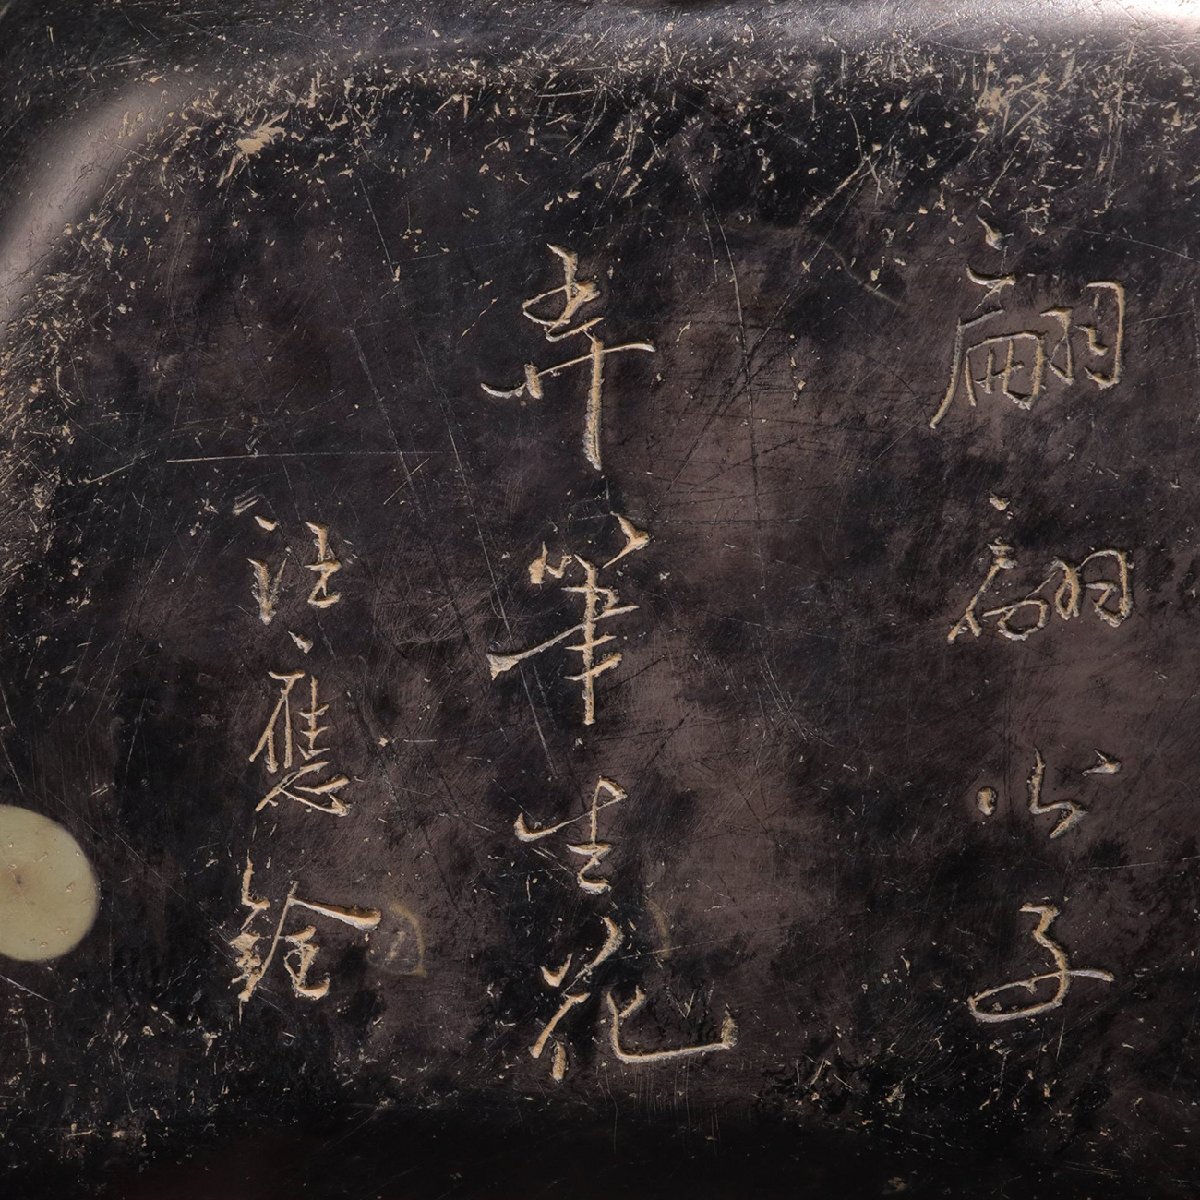 翩翩公子
弄筆生花
汪應銓